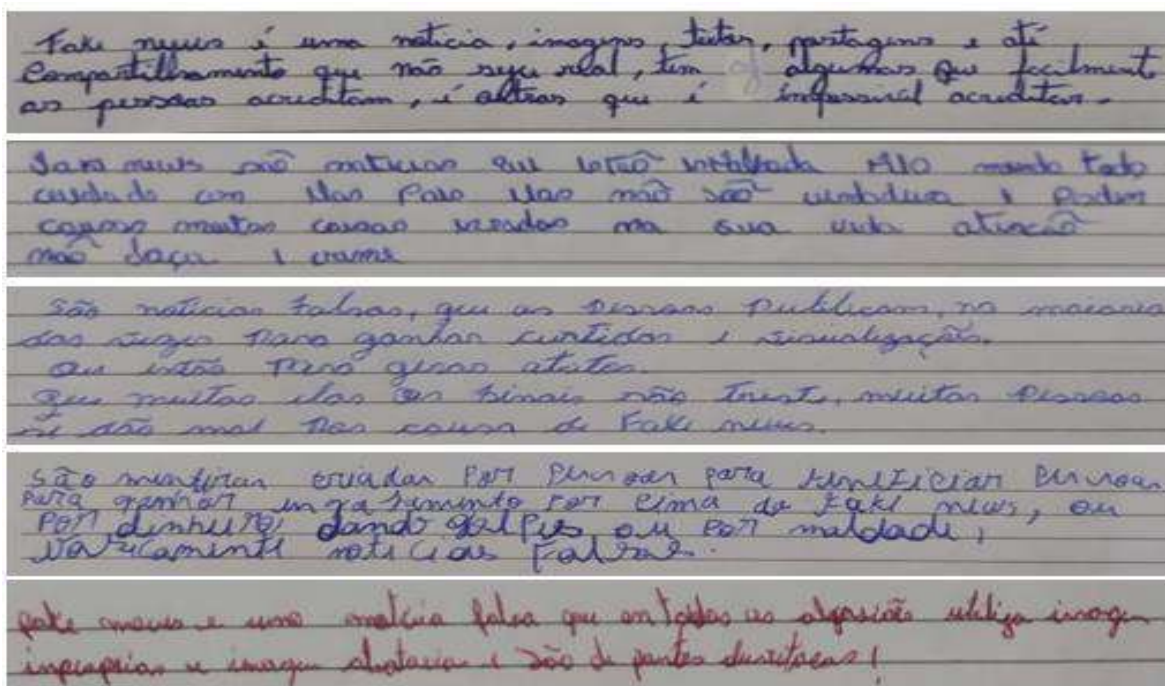 Fake news é uma noticia, imagens, textos, postagens e até
Compartilhamento que não seja real, tem algumas que facilmente
as pessoas acreditam, é outras que é impossivel acreditar.
news são noticias que estão espalhada mundo todo
cuidado com elas elas não são verdadeira e podem
causar muitas coisas na sua vida atenção
não faça é crime
São noticias falsas, que as pessoas publicam, na maioria
das vezes para ganhar curtidas e visualização.
ou então para gerar
que muitas das os sinais não muitas pessoas
se dão mal por causa de Fake news.
São mentiras criadas por pessoas para beneficiar pessoas
para ganhar engajamento por cima de fake news, ou
por dinheiro, dando golpes ou por maldade,
noticias falsas.
fake e uma noticia falsa que utiliza imagem
e imagem e são de